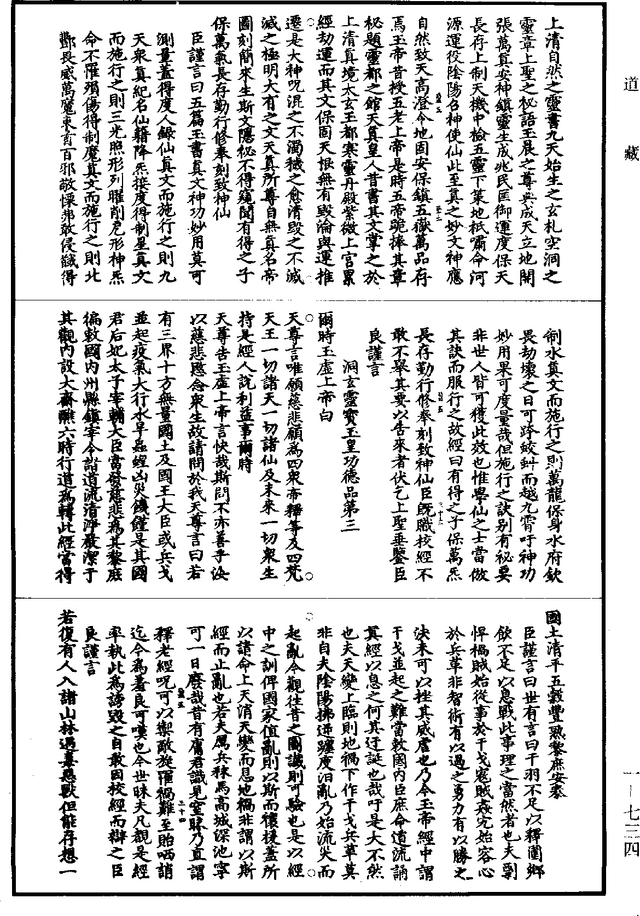 道藏
上清自然之靈書九天始生之玄札空洞之
靈章上聖之秘語玉晨之尊典成天立地開
張萬真安神鎮靈生成兆民匡御運度保天
長存上制天機中檢五靈下策地祇嘯命河
源運役陰陽召神使仙此至真之妙文神應
自然致天高澄令地固安保鎮五嶽萬品存
焉玉帝昔授五老上帝是時五帝跪捧其章
秘題靈都之館天真皇人昔書其文掌之於
上清真境太玄玉都寒靈丹殿紫微上宫累
經劫運而其文保固天根無有毀淪與運推
遷是大神呪混之不濁穢之愈清毀之不滅
滅之極明大有之文天真所尊自無真名帝
圖刻簡來生斯文隱秘不得窺聞有得之子
保萬炁長存勤行修奉刻致神仙
臣謹言曰五篇玉書真文神功妙用莫可
測量蓋得度人錄仙真文而施行之則九
天衆真紀名仙籍降炁接度得制星真文
而施行之則三光照形列曜削死形神炁
命不罹殞傷得制魔真文而施行之則北
酆畏威萬魔束首百邪敬憚弗敢侵試得
制水真文而施行之則萬龍保身水府欽
畏劫壞之日可跨蛟虯而越九霄吁神功
妙用果可度量哉但施行之訣别有秘要
非世人皆可獲此效也惟學仙之士當倣
其訣而服行之故經曰有得之子保萬炁
長存勤行修奉刻致神仙臣既職校經不
敢不舉其要以告來者伏乞上聖垂鑒臣
良謹言
洞玄靈寶玉皇功德品第三
爾時玉虛上帝白
天尊言唯願慈悲顧為四衆帝釋等及四梵
天王一切諸天一切諸仙及未來一切衆生
持是經人說利益事爾時
天尊告玉虛上帝言快哉斯問不亦善乎汝
以慈悲愍念衆生故請問於我天尊言曰若
有三界十方無量國土及國王大臣或兵戈
並起疫氣大行水旱蟲蝗凶災饑饉是其國
君后妃太子宰輔大臣當發慈悲為其黎庶
徧敕國内州縣鎮宰令詔道流清淨嚴潔于
其觀内設大齋醮六時行道為轉此經當得
國土清平五穀豐熟黎庶安泰
臣謹言曰世有言曰干羽不足以釋圍鄉
飲不足以息戰此事理之當然者也夫剽
悍猾賊始從事於干戈寇賊姦宄始容心
於兵革非智術有以過之勇力有以勝之
決未可以挫其威虐也乃今玉帝經中謂
干戈並起之難當敕國内臣庶命道流誦
其經以息之何其迂誕也哉吁是大不然
也夫天變上臨則地禍下作干戈兵革莫
非自夫陰陽拂逆躔度汨亂乃始流災而
起亂今觀往昔之圖讖則可驗也是以經
中之訓俾國家值亂則以斯而懷援蓋所
以請命上天消天變而息地禍非謂以斯
經而止亂也若夫厲兵秣馬高城深池寧
可一日廢哉昔有膚君識見室昧乃直謂
釋老經呪可以禦敵旋罹禍難至貽哂誚
迄今為羞良可嘆也今世昧夫凡覩是經
率執此為謗毀之自敢因校經而辯之臣
良謹言
若復有人入諸山林遇毒惡獸但能存想一
一－七三四